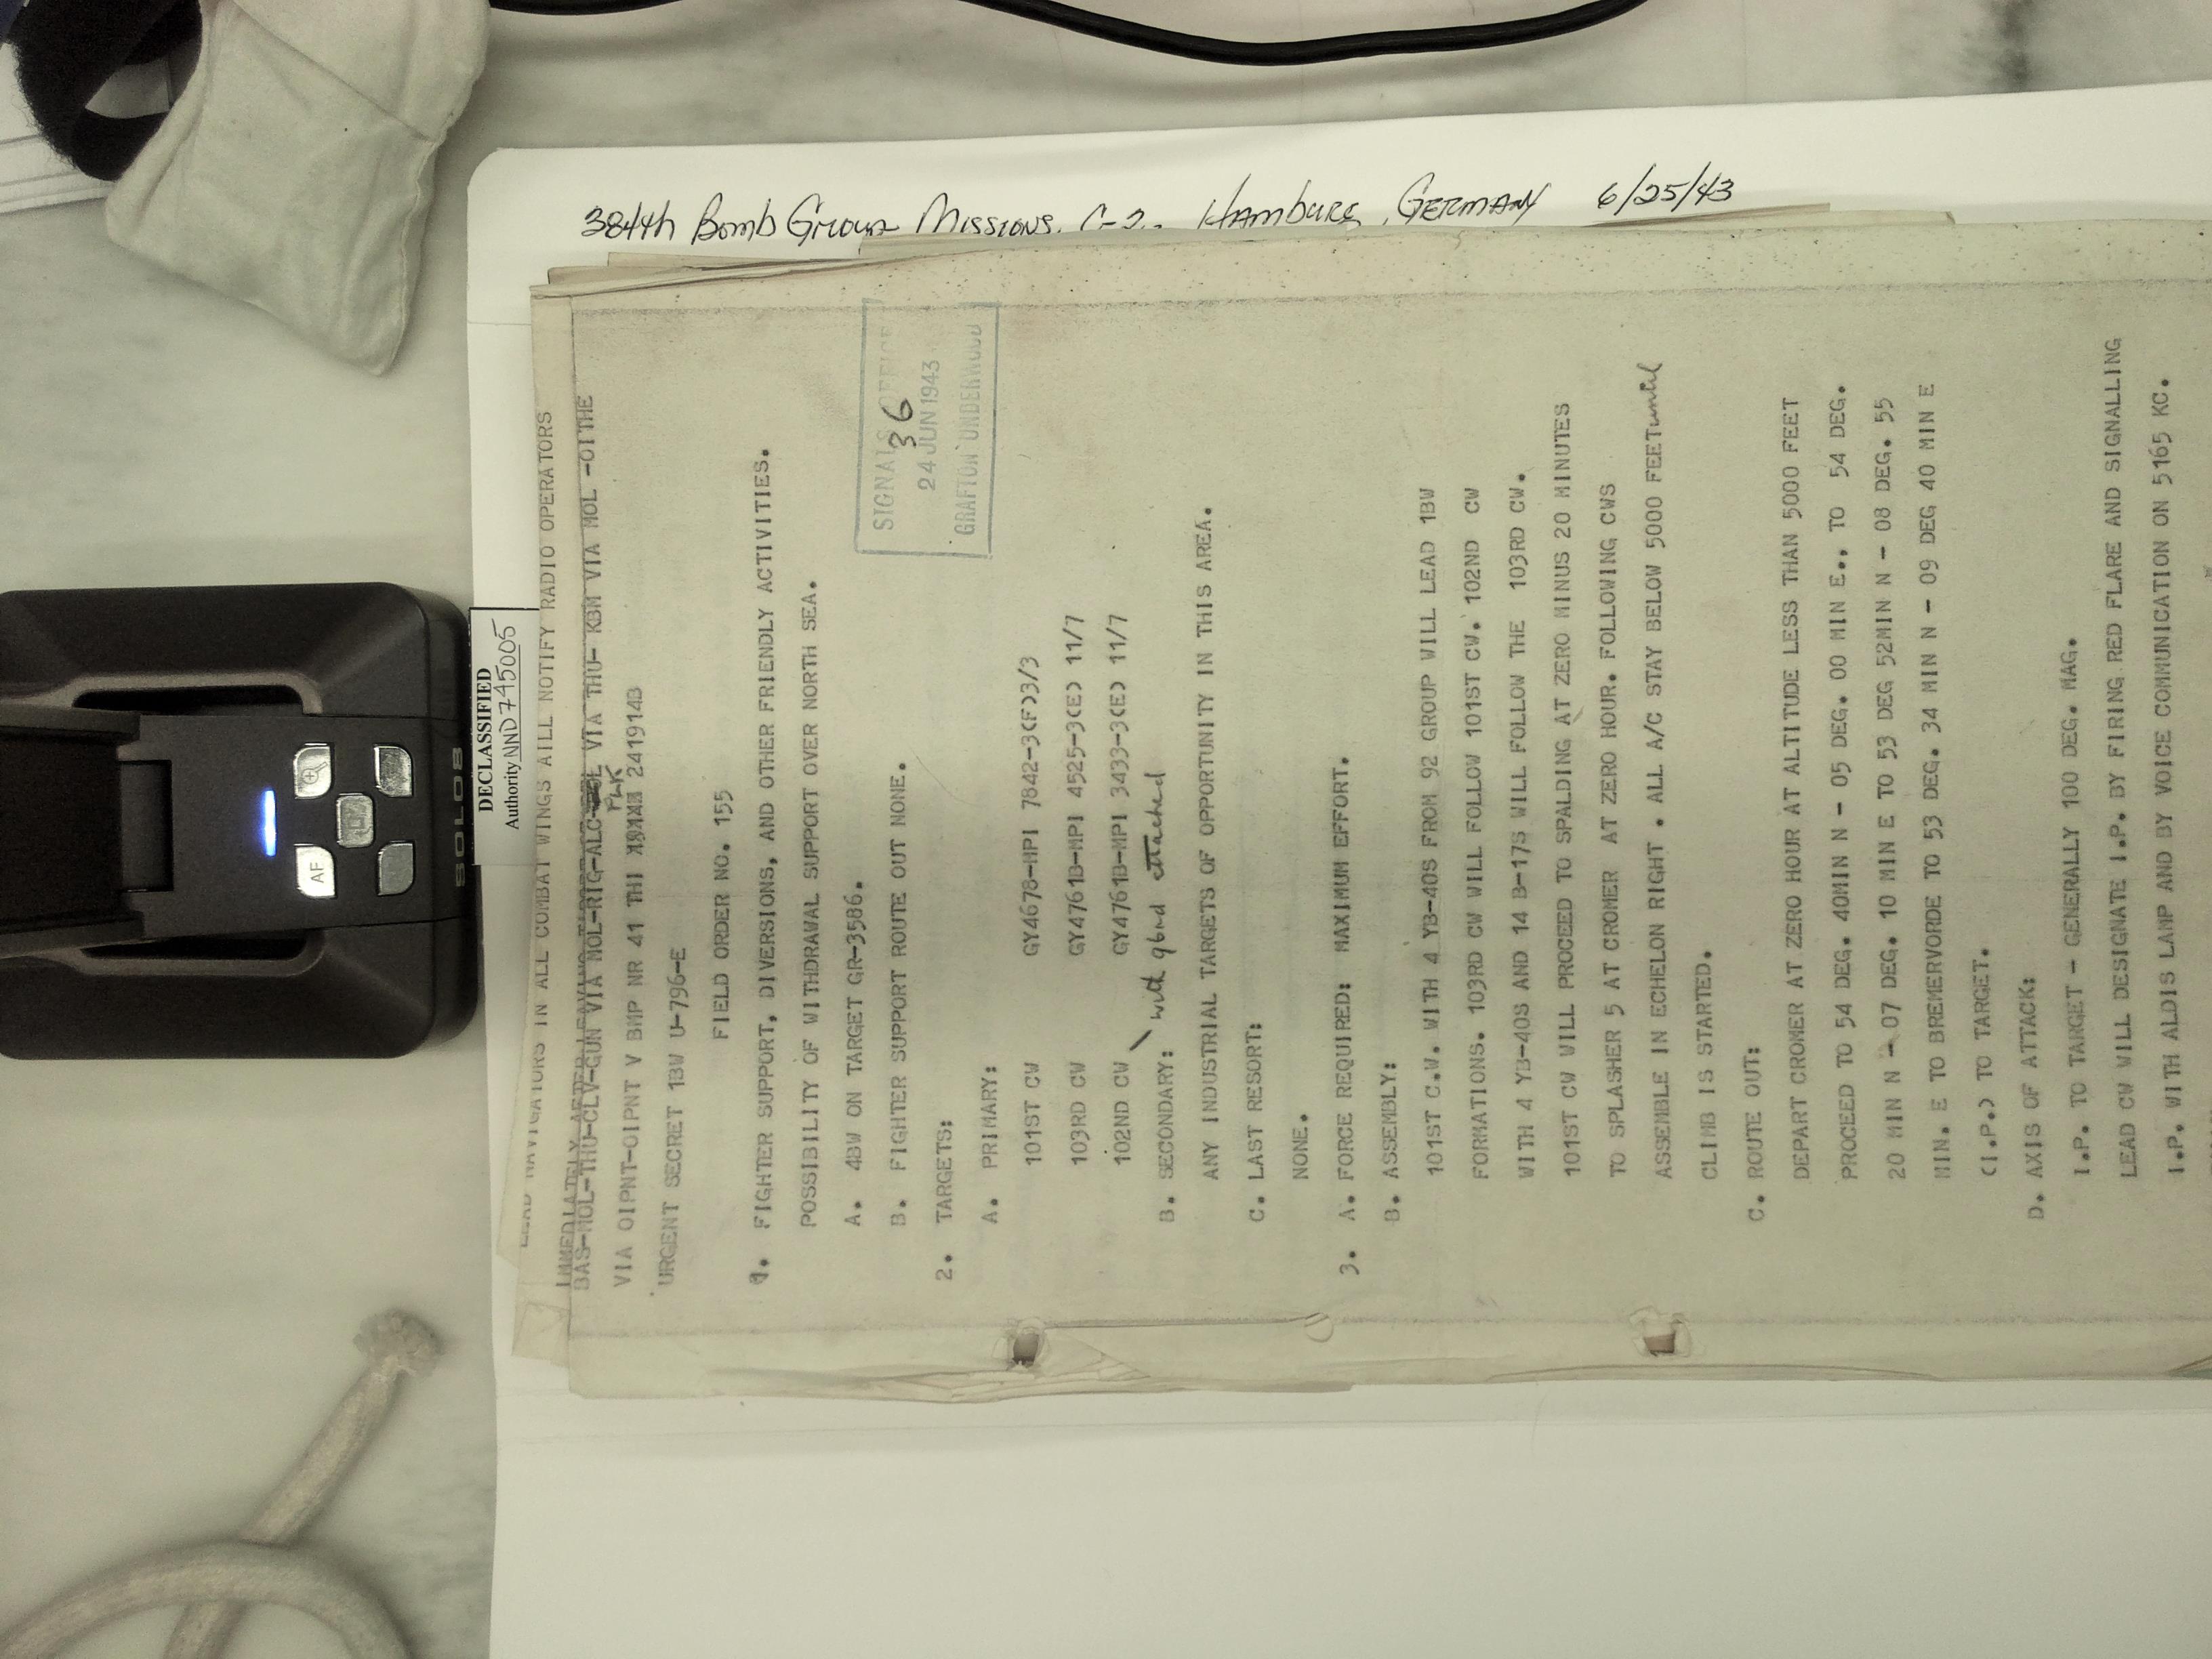 384th Bomb Group Missions. Hamburg, Germany 6/25/43
DECLASSIFIED
Authority NND745005
SOLO8
AF
LEAD NAVIGATORS IN ALL COMBAT WINGS AILL NOTIFY RADIO OPERATORS
IMMEDIATELY AFTER
BAS-MOL-THU-CLV-GUN VIA MOL-RIG-ALC- VIA THU- KBM VIA MOL -OITHE
PLK
VIA OIPNT-OIPNT V BMP NR 41 THI 241914B
URGENT SECRET 1BW U-796-E
FIELD ORDER NO. 155
SIGNALS OFFICE
36
24 JUN 1943
GRAFTON UNDERWOOD
1. FIGHTER SUPPORT, DIVERSIONS, AND OTHER FRIENDLY ACTIVITIES.
POSSIBILITY OF WITHDRAWAL SUPPORT OVER NORTH SEA.
A. 4BW ON TARGET GR-3586.
B. FIGHTER SUPPORT ROUTE OUT NONE.
2. TARGETS:
A. PRIMARY:
101ST CW GY4678-MPI 7842-3(F)3/3
103RD CW GY4761B-MPI 4525-3(E) 11/7
102ND CW GY4761B-MPI 3433-3(E) 11/7
with 96nd attached
B. SECONDARY:
ANY INDUSTRIAL TARGETS OF OPPORTUNITY IN THIS AREA.
C. LAST RESORT:
NONE.
3. A. FORCE REQUIRED: MAXIMUM EFFORT.
B. ASSEMBLY:
101ST C.W. WITH 4 YB-40S FROM 92 GROUP WILL LEAD 1BW
FORMATIONS. 103RD CW WILL FOLLOW 101ST CW. 102ND CW
WITH 4 YB-40S AND 14 B-17S WILL FOLLOW THE 103RD CW.
101ST CW WILL PROCEED TO SPALDING AT ZERO MINUS 20 MINUTES
TO SPLASHER 5 AT CROMER AT ZERO HOUR. FOLLOWING CWS
ASSEMBLE IN ECHELON RIGHT . ALL A/C STAY BELOW 5000 FEET until
CLIMB IS STARTED.
C. ROUTE OUT:
DEPART CROMER AT ZERO HOUR AT ALTITUDE LESS THAN 5000 FEET
PROCEED TO 54 DEG. 40MIN N - 05 DEG. 00 MIN E., TO 54 DEG.
20 MIN N - 07 DEG. 10 MIN E TO 53 DEG 52MIN N - 08 DEG. 55
MIN. E TO BREMERVORDE TO 53 DEG. 34 MIN N - 09 DEG 40 MIN E
(I.P.) TO TARGET.
D. AXIS OF ATTACK:
I.P. TO TARGET - GENERALLY 100 DEG. MAG.
LEAD CW WILL DESIGNATE I.P. BY FIRING RED FLARE AND SIGNALLING
I.P. WITH ALDIS LAMP AND BY VOICE COMMUNICATION ON 5165 KC.